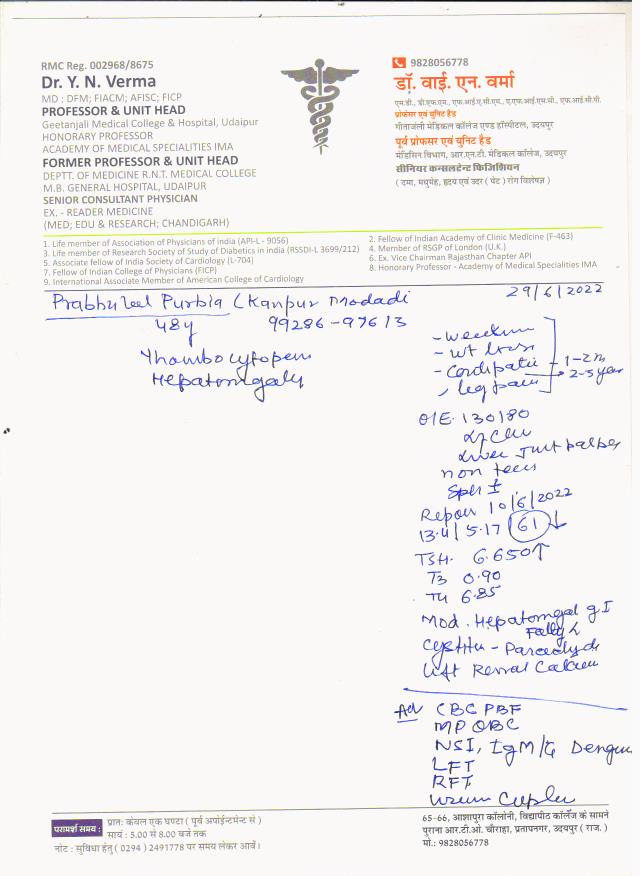 RMC Reg. 002968/8675
Dr. Y. N. Verma
MD : DFM; FIACM; AFISC; FICP
PROFESSOR & UNIT HEAD
Geetanjali Medical College & Hospital, Udaipur
HONORARY PROFESSOR
ACADEMY OF MEDICAL SPECIALITIES IMA
FORMER PROFESSOR & UNIT HEAD
DEPTT. OF MEDICINE R.N.T. MEDICAL COLLEGE
M.B. GENERAL HOSPITAL, UDAIPUR
SENIOR CONSULTANT PHYSICIAN
EX. - READER MEDICINE
(MED; EDU & RESEARCH; CHANDIGARH)
9828056778
डॉ. वाई. एन. वर्मा
एम.डी., डी.एफ.एम., एफ.आई.ए.सी.एम., ए.एफ.आई.एस.सी., एफ.आई.सी.पी.
प्रोफेसर एवं यूनिट हैड
गीतांजली मेडिकल कॉलेज एण्ड हॉस्पिटल, उदयपुर
पूर्व प्रोफेसर एवं यूनिट हैड
मेडिसिन विभाग, आर.एन.टी. मेडिकल कॉलेज, उदयपुर
सीनियर कन्सलटेन्ट फिजिशियन
( दमा, मधुमेह, हृदय एवं उदर ( पेट ) रोग विशेषज्ञ )
1. Life member of Association of Physicians of india (API-L - 9056)
2. Fellow of Indian Academy of Clinic Medicine (F-463)
3. Life member of Research Society of Study of Diabetics in india (RSSDI-L 3699/212)
4. Member of RSGP of London (U.K.)
5. Associate fellow of India Society of Cardiology (L-704)
6. Ex. Vice Chairman Rajasthan Chapter API
7. Fellow of Indian College of Physicians (FICP)
8. Honorary Professor - Academy of Medical Specialities IMA
9. International Associate Member of American College of Cardiology
Purbia (Kanpur
29/6/2022
48y 99286-97613
- wt loss
1-2 m
leg pain 2-3 year
O/E. 130/80
Liver Just
non
Report 10/6/2022
13.4 / 5.17 61 ↓
TSH. 6.650 ↑
T3 0.90
T4 6.85
Mod.
left Renal
Adv CBC PBF
MP QBC
NSI, IgM/G Dengue
LFT
RFT
परामर्श समय :
प्रातः केवल एक घण्टा ( पूर्व अपोईन्टमेन्ट से )
सायं : 5.00 से 8.00 बजे तक
नोट : सुविधा हेतु ( 0294 ) 2491778 पर समय लेकर आवें।
65-66, आशापुरा कॉलोनी, विद्यापीठ कॉलेज के सामने
पुराना आर.टी.ओ. चौराहा, प्रतापनगर, उदयपुर ( राज. )
मो.: 9828056778